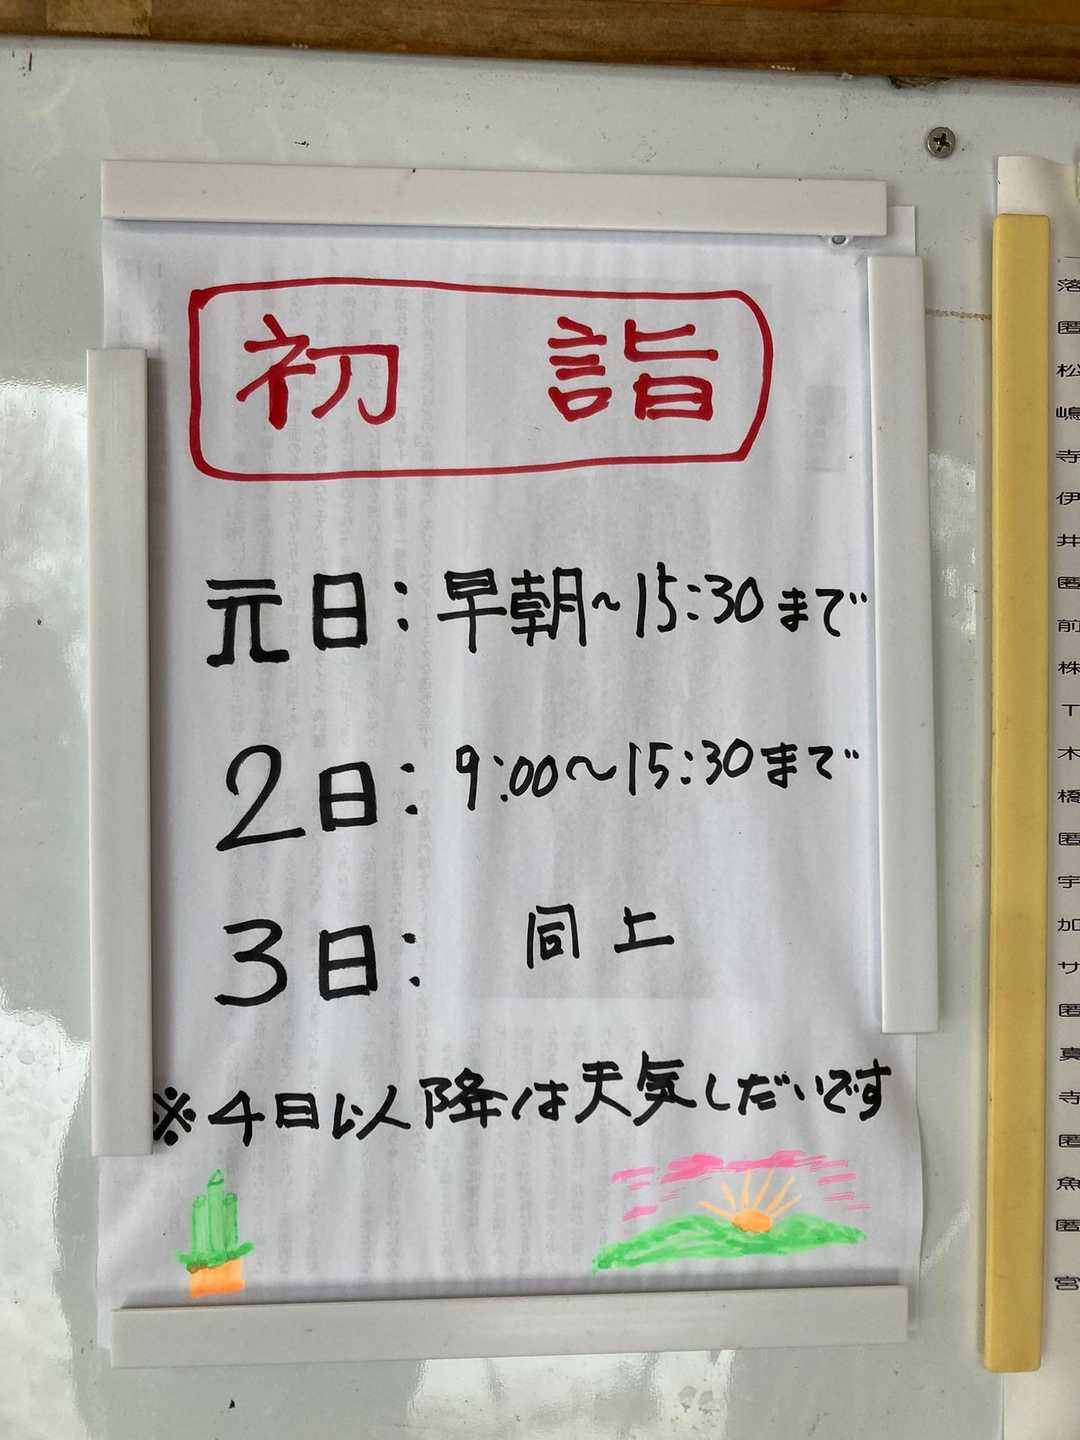 初詣
元日：早朝～15:30まで
2日：9:00～15:30まで
3日：同上
※4日以降は天気しだいです
落
匿
松
嶋
寺
伊
井
匿
前
株
T
木
橋
匿
宇
加
サ
匿
真
寺
匿
魚
匿
宮